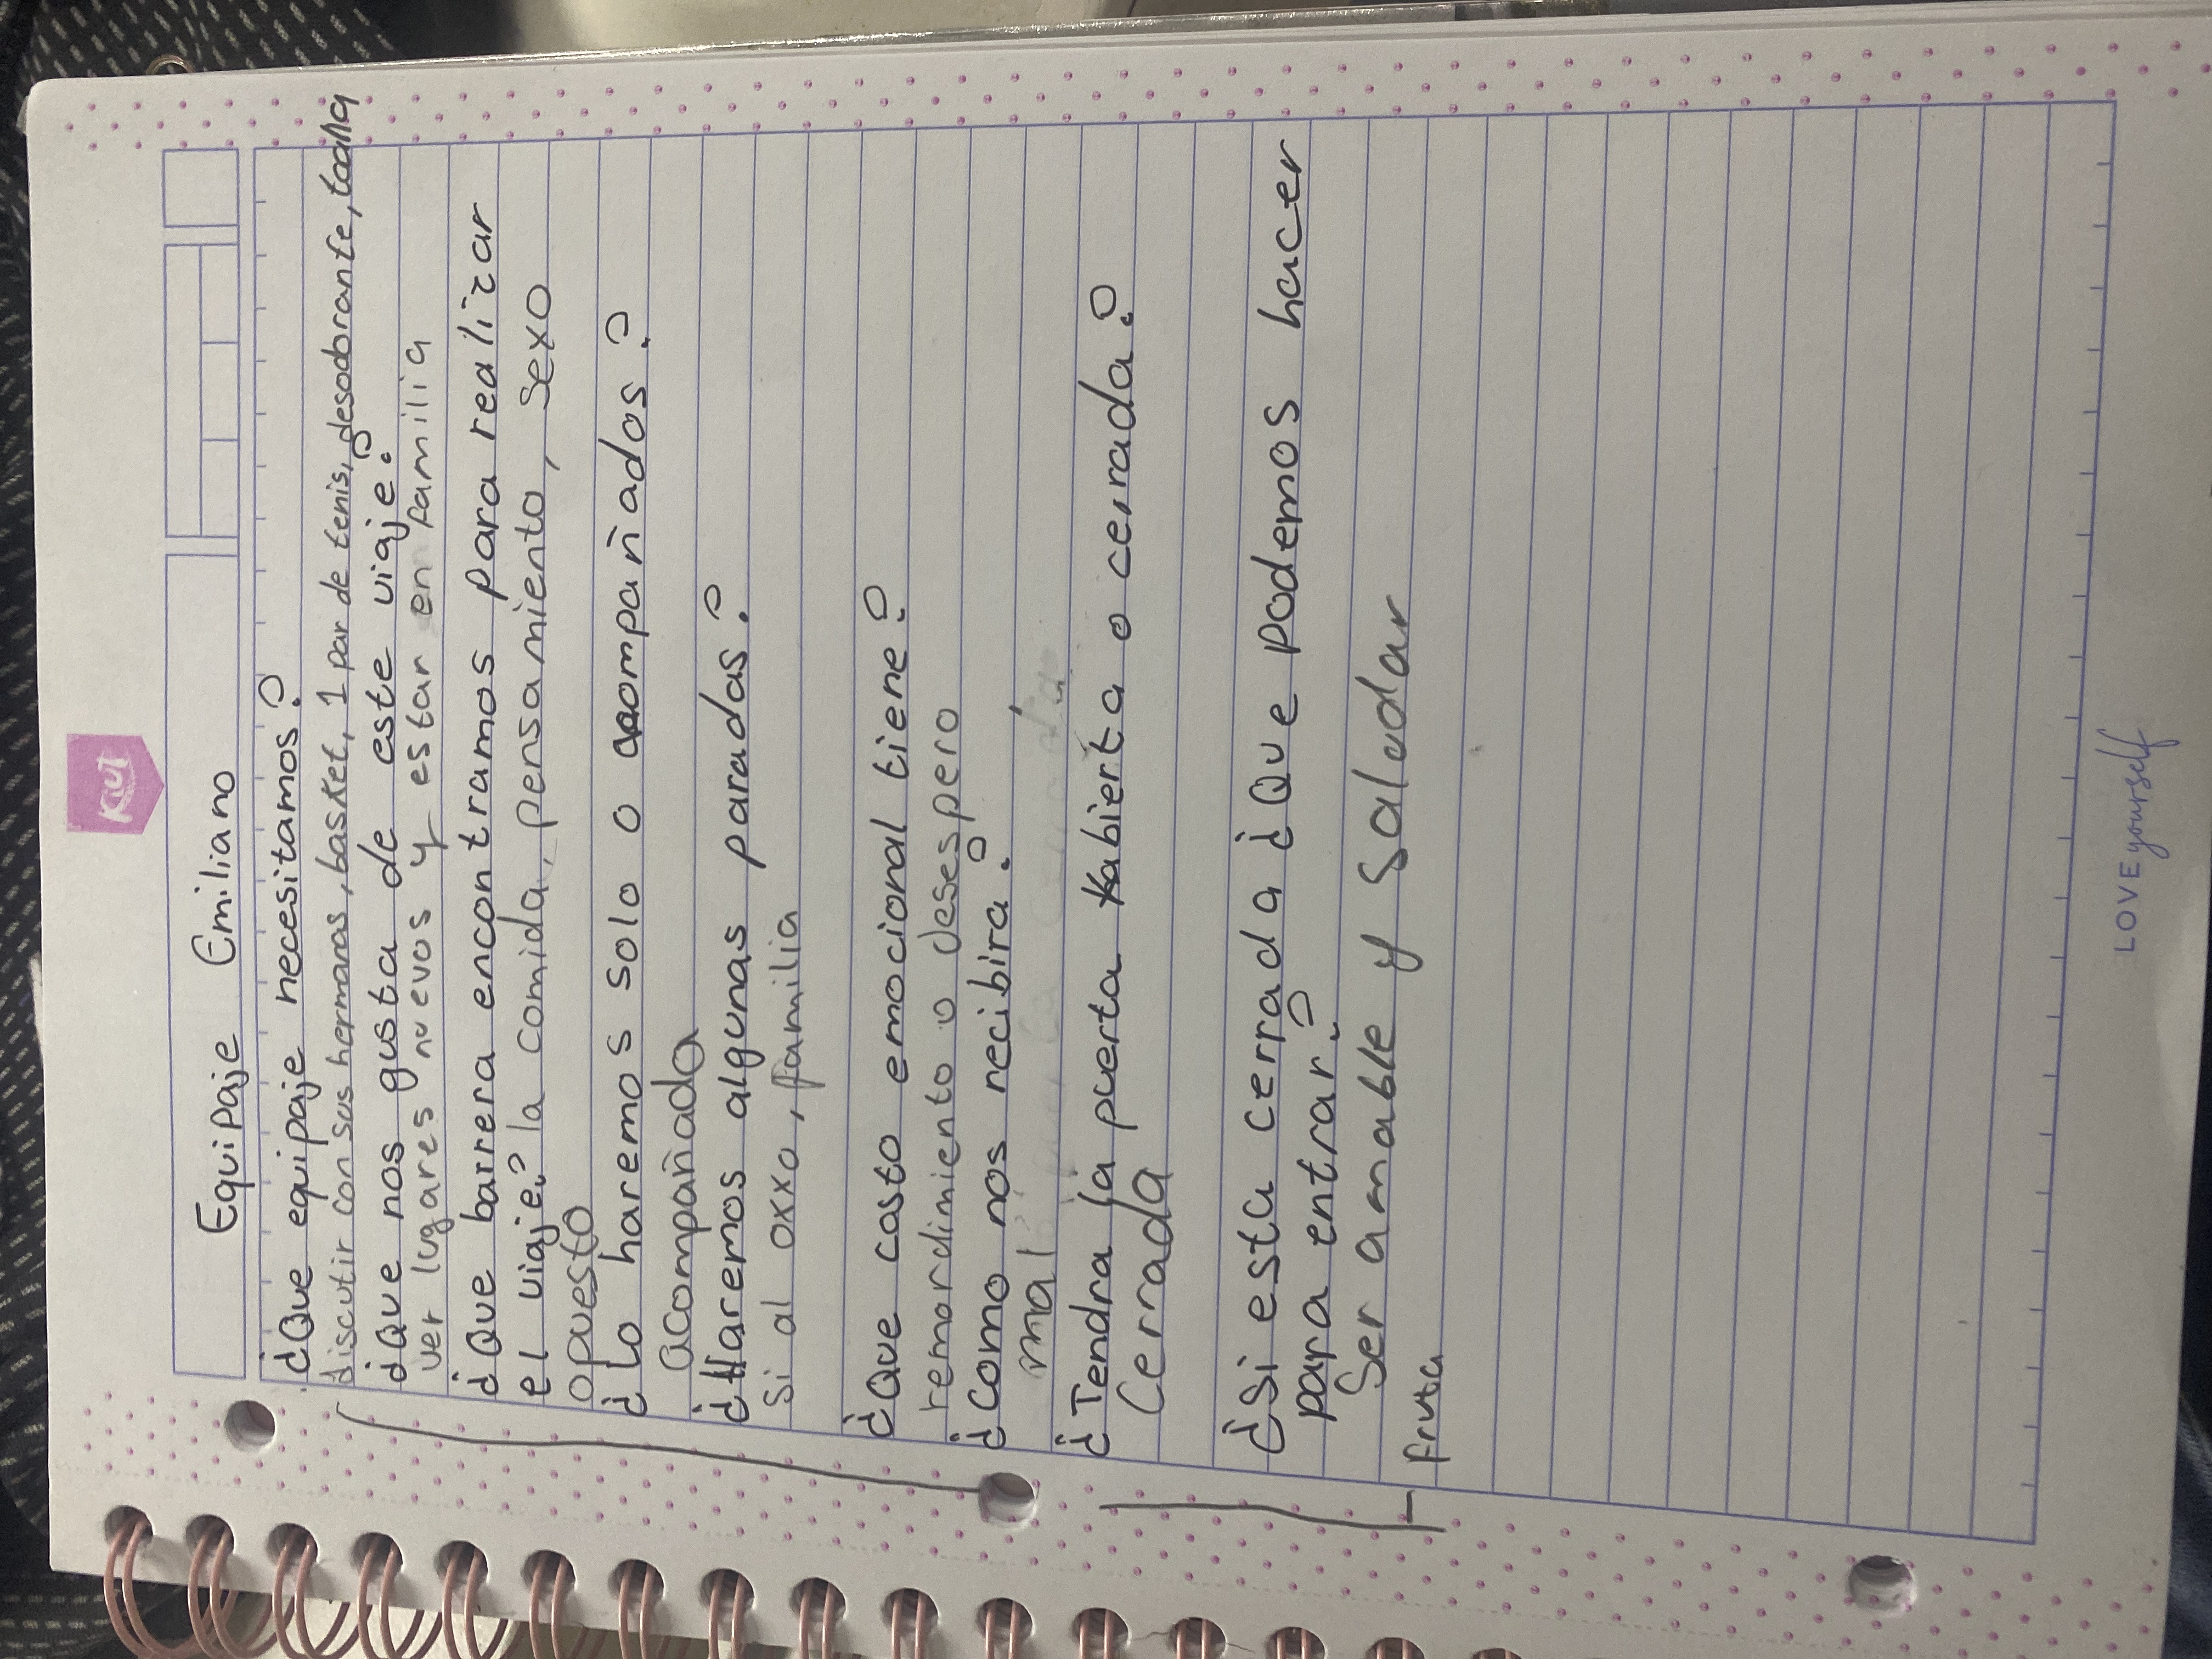 Kiut
Equipaje Emiliano
¿Que equipaje necesitamos?
discutir con sus hermanos, basket, 1 par de tenis, desodorante, toalla
¿Que nos gusta de este viaje?
ver lugares nuevos y estar en familia
¿Que barrera encontramos para realizar
el viaje? la comida, pensamiento, sexo
opuesto
¿lo haremos solo o acompañados?
acompañado
¿Haremos algunas paradas?
Si al oxxo, familia
¿Que costo emocional tiene?
remordimiento o desespero
¿Como nos recibira?
mal
¿Tendra la puerta abierta o cerrada?
Cerrada
¿Si esta cerrada ¿Que podemos hacer
para entrar?
Ser amable y Saludar
fruta
LOVE yourself